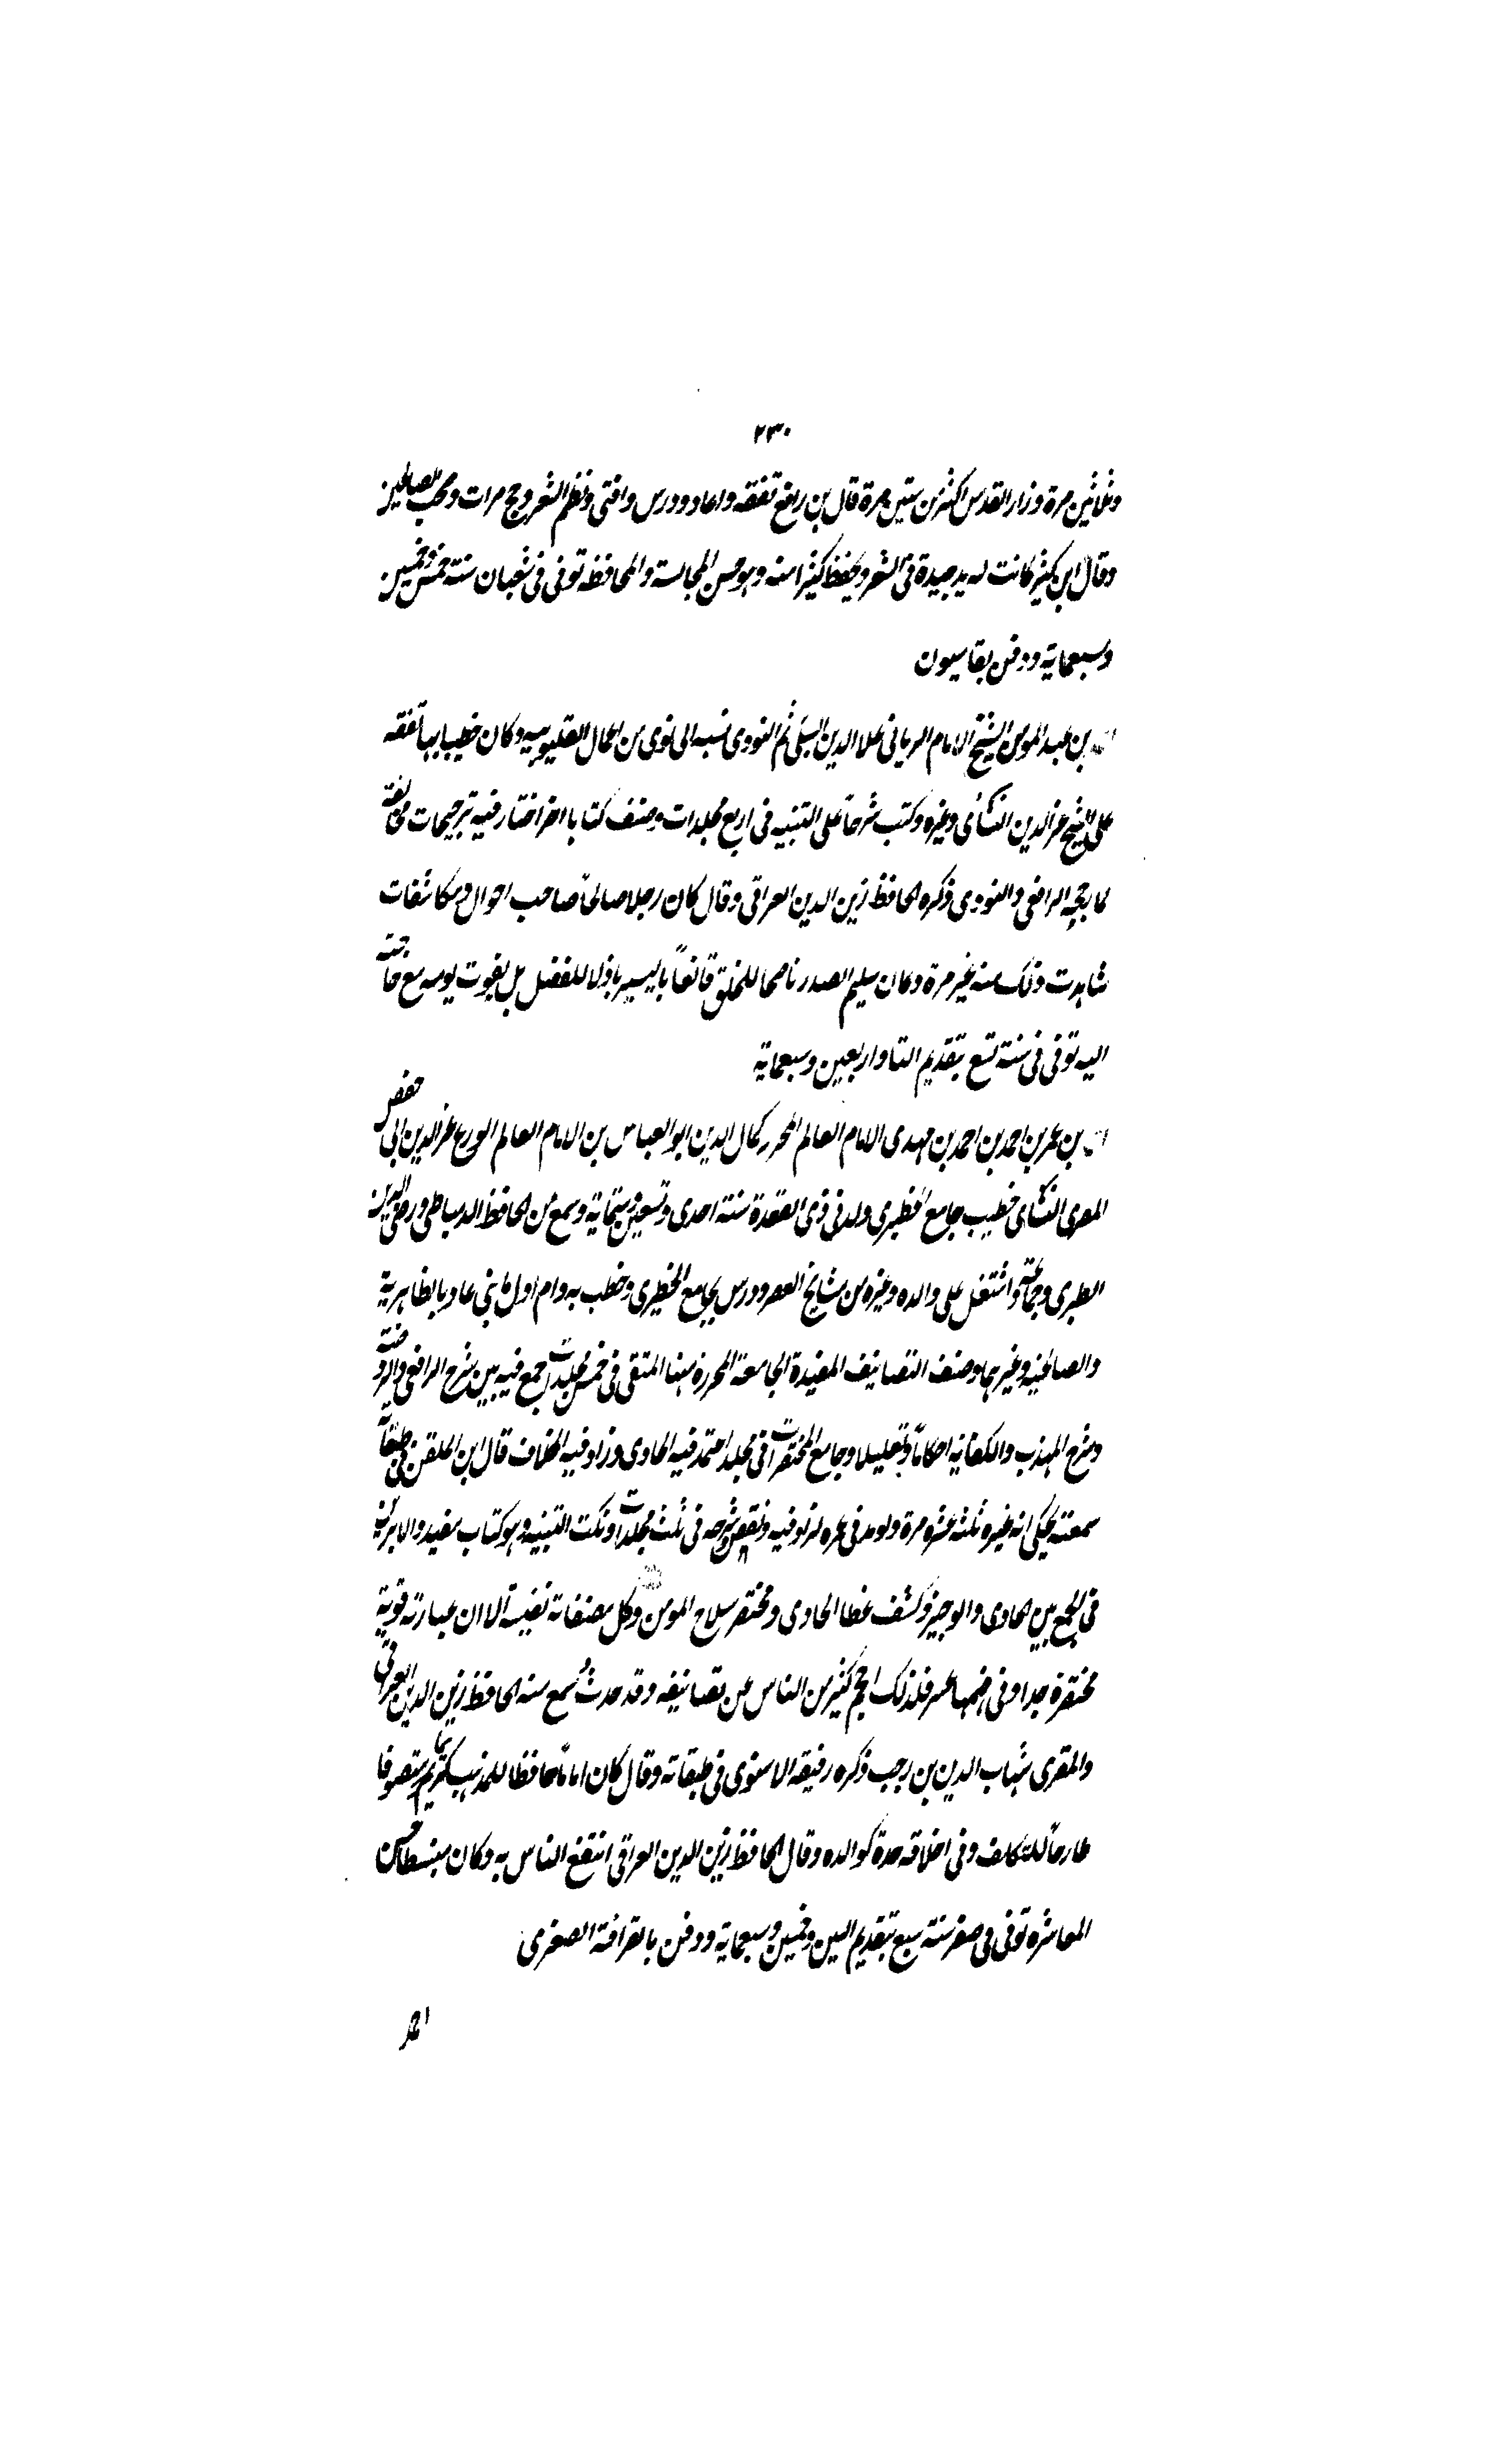 ٢٣٠
وثلاثين مرة وزار القدس اكثر من ستين مرة قال بن رافع تفقه واعاد ودرس وافتى ونظم الشعر وحج مرات وصحب الصالحين
وقال ابن كثير كانت له يد جيدة فى الشعر ويحفظ كثيرا منه وهو حسن المجالسة والمحافظه توفى فى شعبان سنة خمس وخمسين
وسبعماية ودفن بقاسيون
بن عبد المومن الشيخ الامام الربانى علا الدين السبكى ثم النووى نسبه الى نوى من اعمال القليوبيه وكان خطيبا بها تفقه
على الشيخ عز الدين النشائى وغيره وكتب شرحاً على التنبيه فى اربع مجلدات وصنف كتابا اخر اختار فيه ترجيحات مخالفة
لما رجحه الرافعى والنووى ذكره الحافظ زين الدين العراقى وقال كان رجلا صالحاً صاحب احوال ومكاشفات
شاهدت ذلك منه غير مرة وكان سليم الصدر ناصحا للخلق قانعاً باليسير باذلا للفضل بل لقوت يومه مع حاجته
اليه توفى فى سنة تسع بتقديم التا واربعين وسبعماية
بن عمر بن احمد بن احمد بن مهدى الامام العالم المحرر كمال الدين ابو العباس بن الامام العالم الورع عز الدين ابى حفص
المصرى النشائى خطيب جامع الخطيرى ولد فى ذى القعدة سنة احدى وتسعين وستماية وسمع من الحافظ الدمياطى ورضى الدين
الطبرى وجماعة واشتغل على والده وغيره من مشايخ العصر ودرس بجامع الخطيرى وخطب به وام اول ما بنى واعاد بالظاهرية
والصالحيه وغيرهما وصنف التصانيف المفيدة الجامعة المحررة منها المنتقى فى خمس مجلدات جمع فيه بين شرح الرافعى والروضة
وشرح المهذب والكفايه احكاماً وتعليلا وجامع المختصرات فى مجلد اعتمد فيه الحاوى وزاد فيه الخلاف قال ابن الملقن فى طبقاته
سمعته يحكى انه غيره ثلثه عشره مرة ولو مد فى عمره لزاد فيه ونقص وشرحه فى ثلث مجلدات ونكت التنبيه وهو كتاب مفيد والابريز
فى الجمع بين الحاوى والوجيز وكشف غطا الحاوى ومختصر سلاح المومن وكل مصنفاته نفيسة الا ان عبارته قوية
مختصرة جدا وفى فهمها عسر فلذلك احجم كثير من الناس عن تصانيفه وقد حدث سُمع منه الحافظ زين الدين العراقى
والمقرى شهاب الدين بن رجب ذكره رفيقه الاسنوى فى طبقاته وقال كان اماماً حافظا للمذهب كريما متصوفا
طارحاً للتكلف وفى اخلاقه حدة كوالده وقال الحافظ زين الدين العراقى انتفع الناس به وكان منبسطا حسن
المعاشره توفى فى صفر سنة سبع بتقديم السين وخمسين وسبعماية ودفن بالقرافة الصغرى
احمد